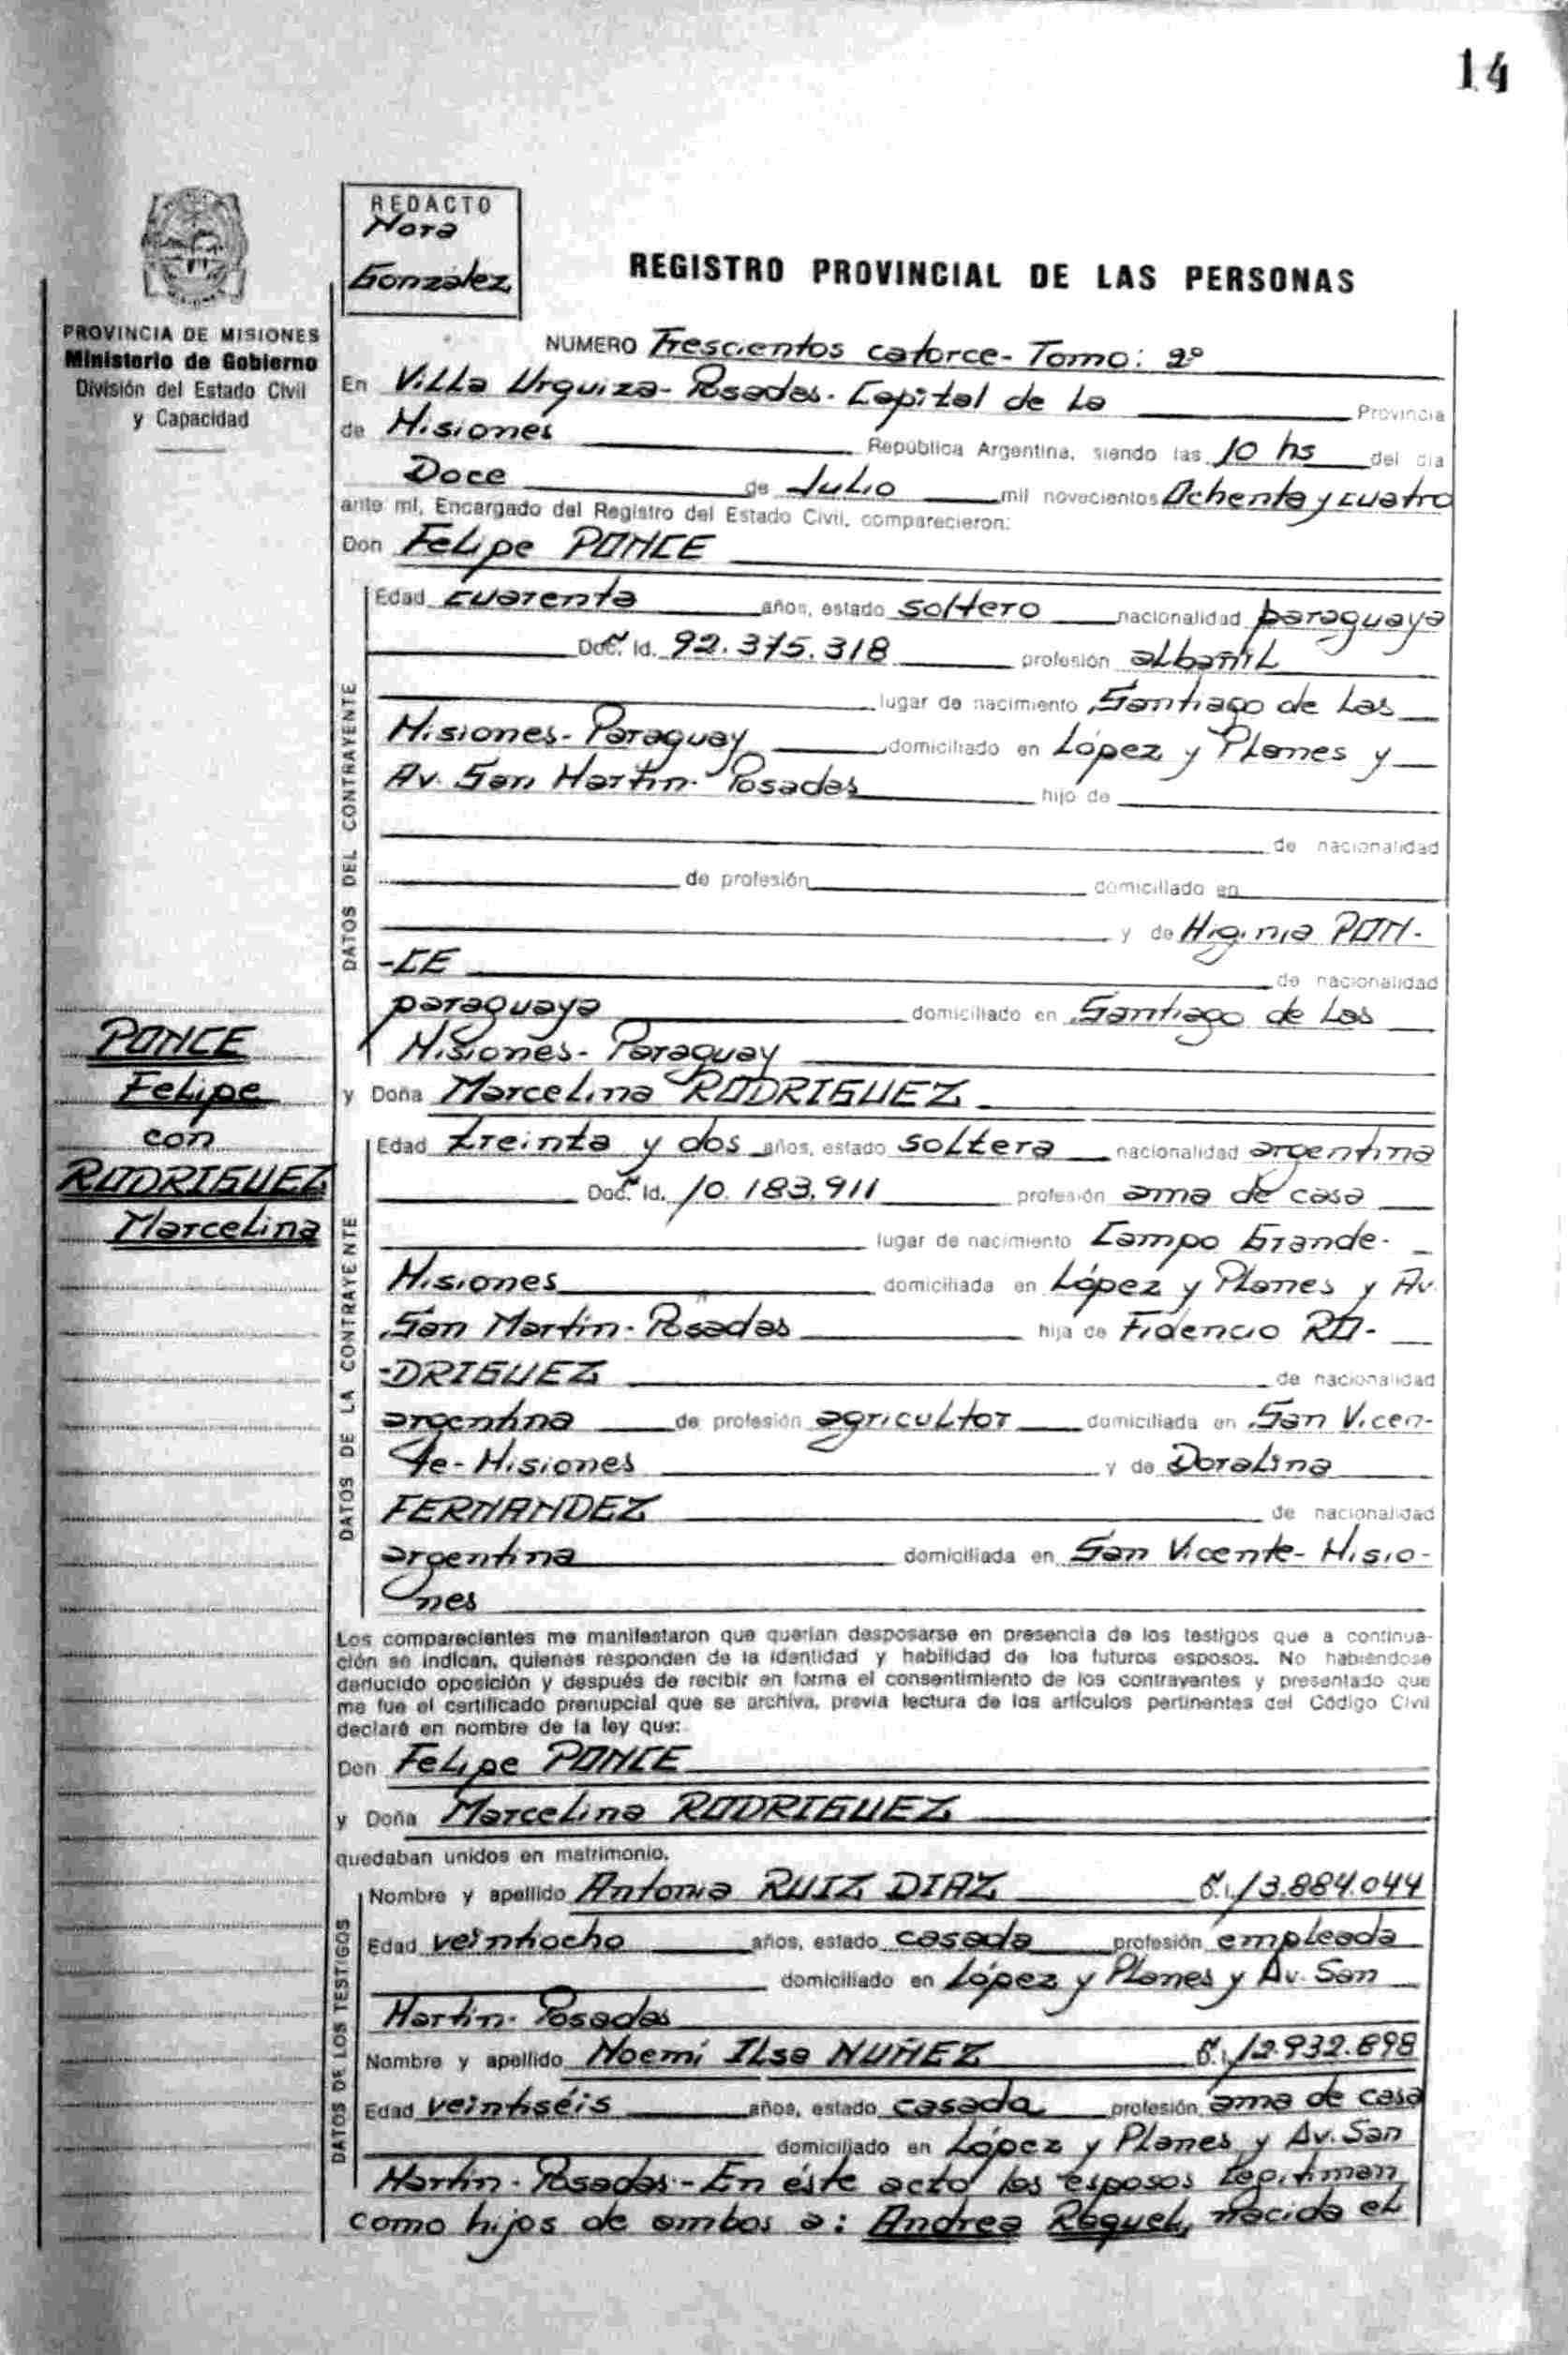 14
REDACTO
Nora
Gonzalez
REGISTRO PROVINCIAL DE LAS PERSONAS
PROVINCIA DE MISIONES
Ministerio de Gobierno
División del Estado Civil
y Capacidad
NUMERO Trescientos catorce- Tomo: 2º
En Villa Urquiza- Posadas. Capital de La Provincia
de Misiones República Argentina, siendo las 10 hs del dia
Doce de Julio mil novecientos Ochenta y cuatro
ante mí, Encargado del Registro del Estado Civil, comparecieron:
Don Felipe PONCE
DATOS DEL CONTRAYENTE
Edad cuarenta años, estado soltero nacionalidad paraguaya
Doc. Id. 92.375.318 profesión albañil
lugar de nacimiento Santiago de Las
Misiones- Paraguay domiciliado en López y Planes y
Av. San Martín- Posadas hijo de
de nacionalidad
de profesión domiciliado en
y de Higinia PON-
-CE de nacionalidad
paraguaya domiciliado en Santiago de Las
Misiones- Paraguay
PONCE
Felipe
con
RODRIGUEZ
Marcelina
y Doña Marcelina RODRIGUEZ
DATOS DE LA CONTRAYENTE
Edad treinta y dos años, estado soltera nacionalidad argentina
Doc. Id. 10.183.911 profesión ama de casa
lugar de nacimiento Campo Grande-
Misiones domiciliada en López y Planes y Av.
San Martín- Posadas hija de Fidencio RO-
-DRIGUEZ de nacionalidad
argentina de profesión agricultor domiciliada en San Vicen-
te- Misiones y de Doralina
FERNANDEZ de nacionalidad
argentina domiciliada en San Vicente- Misio-
nes
Los comparecientes me manifestaron que querían desposarse en presencia de los testigos que a continua-
ción se indican, quienes responden de la identidad y habilidad de los futuros esposos. No habiéndose
deducido oposición y después de recibir en forma el consentimiento de los contrayantes y presentado que
me fue el certificado prenupcial que se archiva, previa lectura de los artículos pertinentes del Código Civil
declaré en nombre de la ley que:
Don Felipe PONCE
y Doña Marcelina RODRIGUEZ
quedaban unidos en matrimonio.
DATOS DE LOS TESTIGOS
Nombre y apellido Antonia RUIZ DIAZ 13.884.044
Edad veintiocho años, estado casada profesión empleada
domiciliado en López y Planes y Av. San
Martín- Posadas
Nombre y apellido Noemí Ilsa NUÑEZ 12.932.898
Edad veintiséis años, estado casada profesión ama de casa
domiciliado en López y Planes y Av. San
Martín- Posadas- En éste acto los esposos legitiman
como hijos de ambos a: Andrea Raquel, nacida el